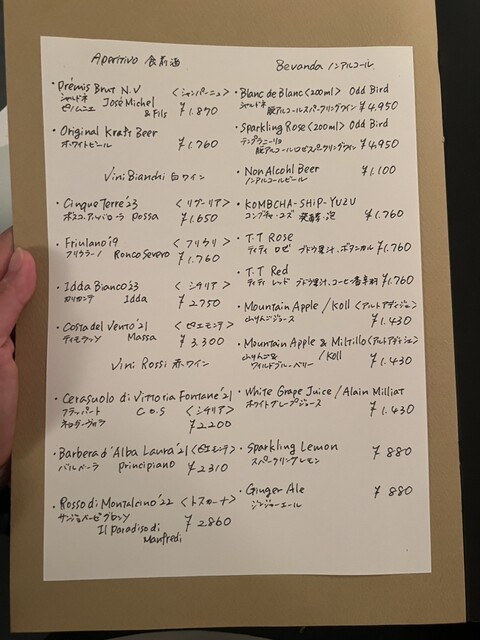 Aperitivo 食前酒
・Prémis Brut N.V 〈シャンパーニュ〉
シャルドネ José Michel
ピノムニエ & Fils ¥1.870
・Original Kraft Beer
ホワイトビール ¥1.760
Vini Bianchi 白ワイン
・Cinque Terre'23 〈リグーリア〉
ボスコ、アルバローラ Possa ¥1.650
・Friulano'19 〈フリウリ〉
フリウラーノ Ronco Severo ¥1.760
・Idda Bianco'23 〈シチリア〉
カリカンテ Idda ¥2750
・Costa del Vento'21 〈ピエモンテ〉
ティモラッソ Massa ¥3.300
Vini Rossi 赤ワイン
・Cerasuolo di Vittoria Fontane'21
フラッパート C.O.S 〈シチリア〉
ネロダーヴォラ ¥2.200
・Barbera d'Alba Laura'21 〈ピエモンテ〉
バルベーラ Principiano ¥2310
・Rosso di Montalcino'22 〈トスカーナ〉
サンジョベーゼグロッソ ¥2.860
Il Paradiso di
Manfredi
Bevanda ノンアルコール
・Blanc de Blanc (200ml) Odd Bird
シャルドネ 脱アルコールスパークリングワイン ¥4.950
・Sparkling Rose (200ml) Odd Bird
テンプラニーリョ
脱アルコールロゼスパークリングワイン ¥4.950
・Non Alcohl Beer
ノンアルコールビール ¥1.100
・KOMBCHA-SHIP-YUZU
コンブチャ・ユズ 発酵・泡 ¥1.760
・T.T Rose
ティティ ロゼ ブドウ果汁、ボタニカル ¥1.760
・T.T Red
ティティ レッド ブドウ果汁、コーヒー香辛料 ¥1.760
・Mountain Apple / Koll 〈アルトアディジェ〉
山りんごジュース ¥1.430
・Mountain Apple & Miltillo 〈アルトアディジェ〉
山りんご& /Koll
ワイルドブルーベリー ¥1.430
・White Grape Juice / Alain Milliat
ホワイトグレープジュース ¥1.430
・Sparkling Lemon ¥880
スパークリングレモン
・Ginger Ale ¥880
ジンジャーエール